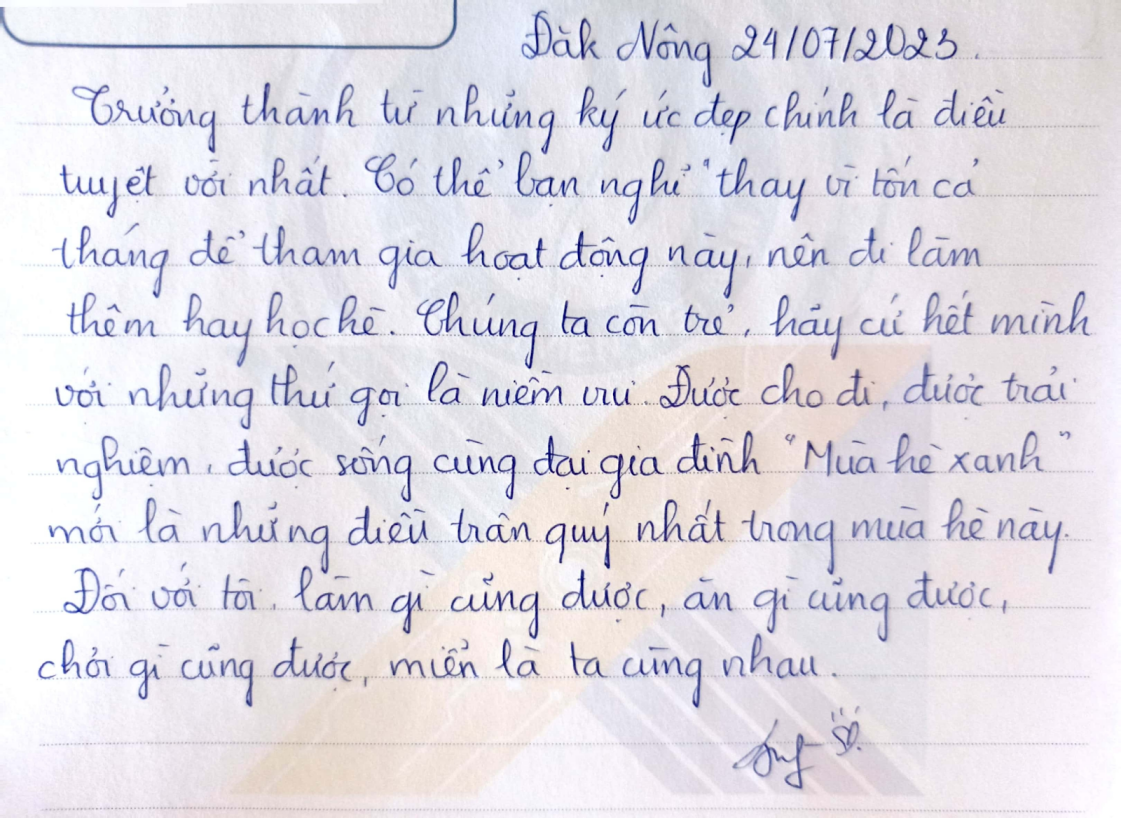 Đăk Nông 24/07/2023.
Trưởng thành từ những ký ức đẹp chính là điều
tuyệt vời nhất. Có thể bạn nghĩ "thay vì tốn cả
tháng để tham gia hoạt động này, nên đi làm
thêm hay học hè. Chúng ta còn trẻ, hãy cứ hết mình
với những thứ gọi là niềm vui. Được cho đi, được trải
nghiệm, được sống cùng đại gia đình "Mùa hè xanh"
mới là những điều trân quý nhất trong mùa hè này.
Đối với tôi, làm gì cũng được, ăn gì cũng được,
chơi gì cũng được, miễn là ta cùng nhau.